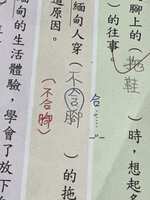 腳上的（拖鞋）時，想起多
的往事
緬甸人穿（不合腳）的拖
合
道原因。
（不合腳）
緬甸的生活體驗，學會了放下